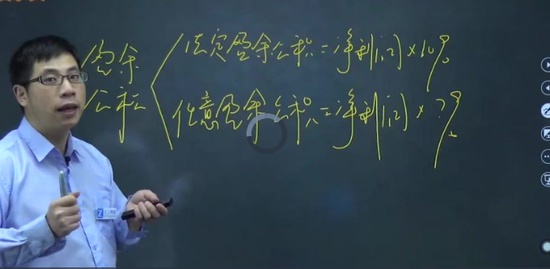 盈余公积
法定盈余公积=净利润×10%
任意盈余公积=净利润×?%